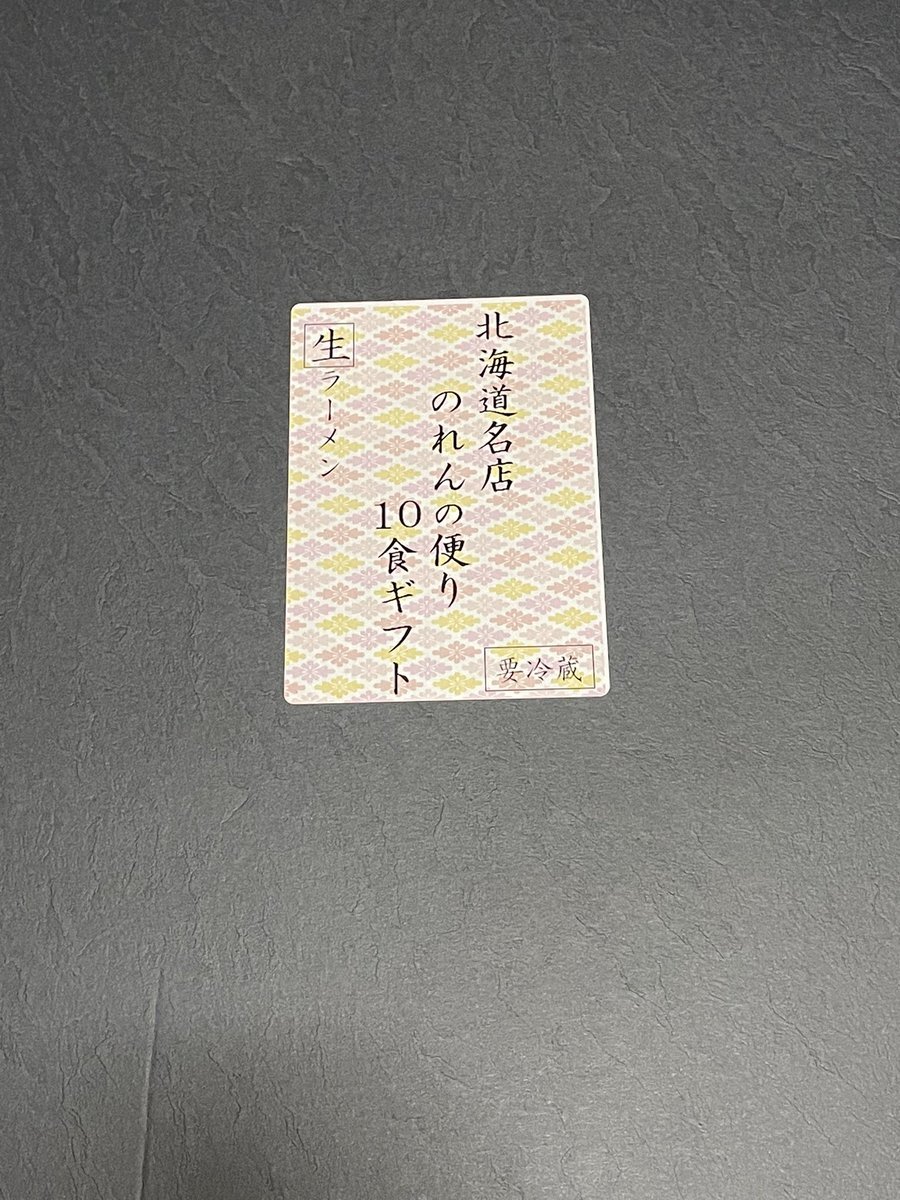 北海道名店
のれんの便り
10食ギフト
生ラーメン
要冷蔵